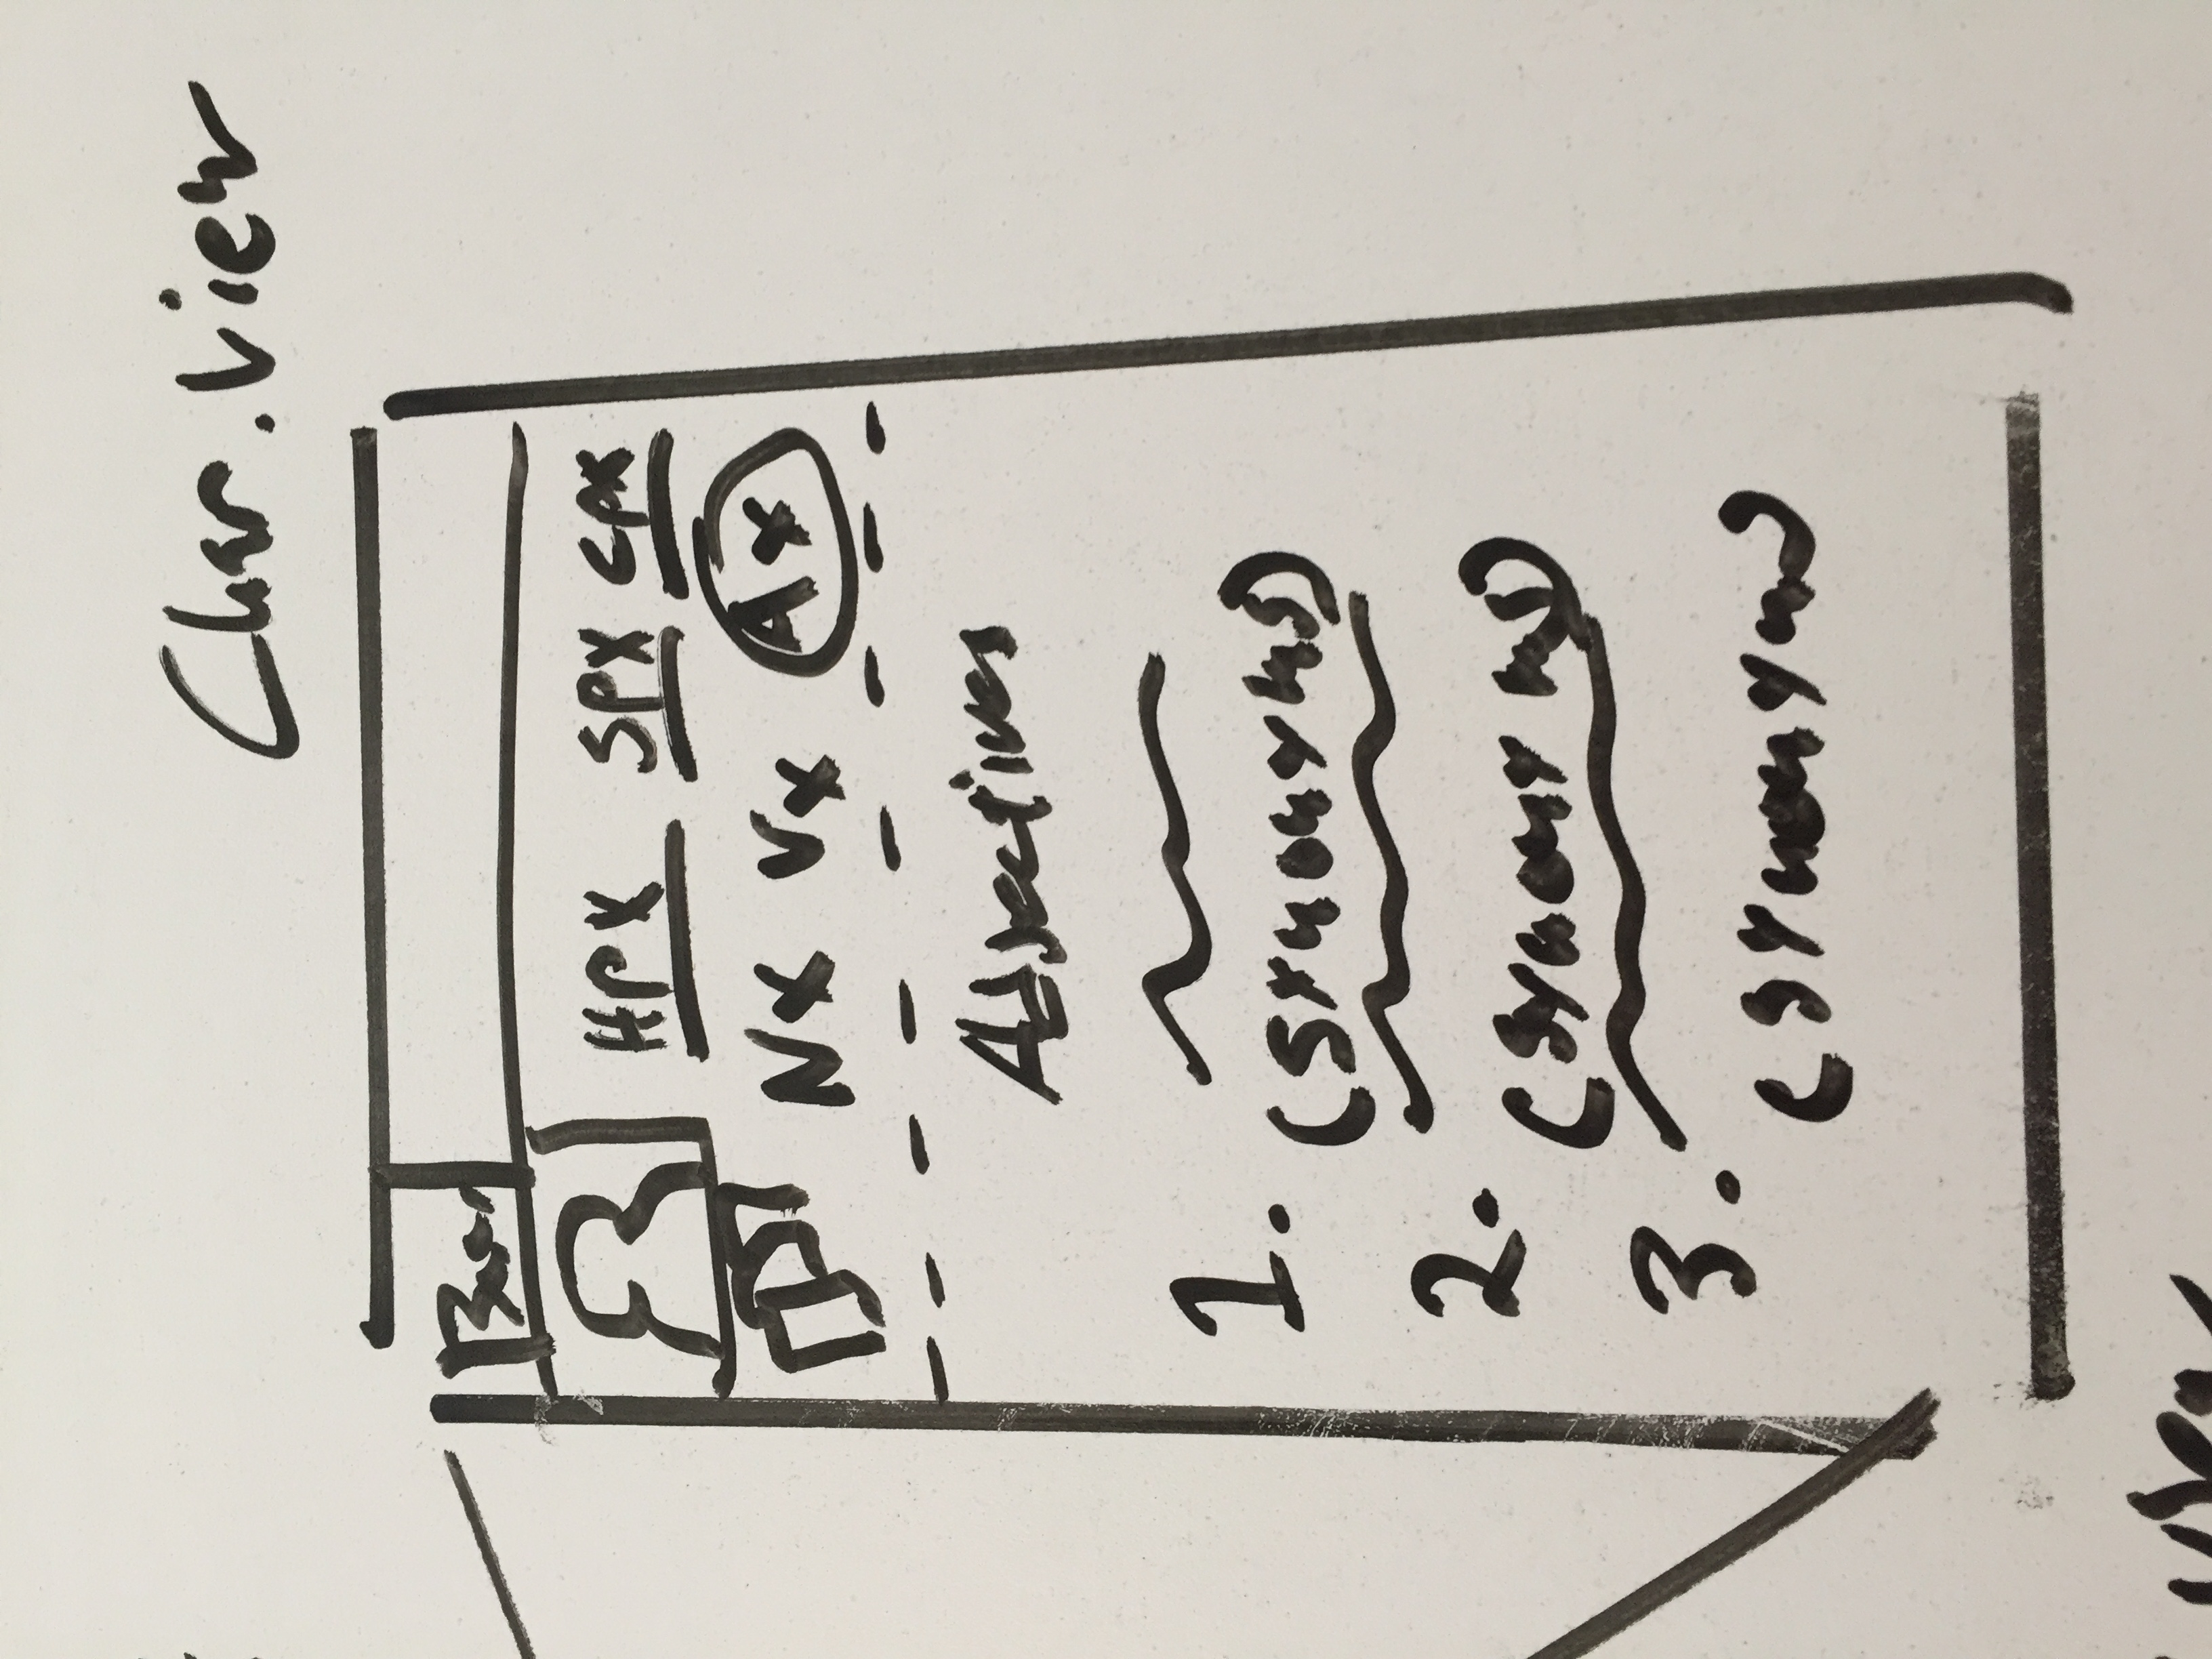 Char. View
HPX SPX CPX
NX VX AX
Adjectives
1.
(Synonyms)
2.
(Synonyms)
3.
(Synonyms)
view